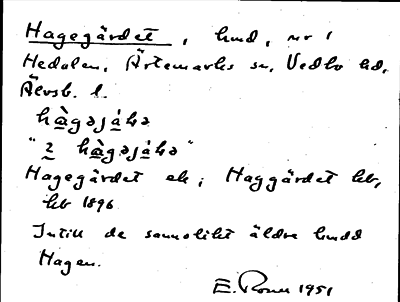 Hagegärdet, hmd, nr 1
Hedalen, Ärtemarks sn, Vedbo hd,
Älvsb. l.
hàgəjáɫə
"2 hàgəjáɫə"
Hagegärdet ek; Haggärdet kb,
hb 1896
Intill de sannolikt äldre hmdd
Hagen.
E. 1951